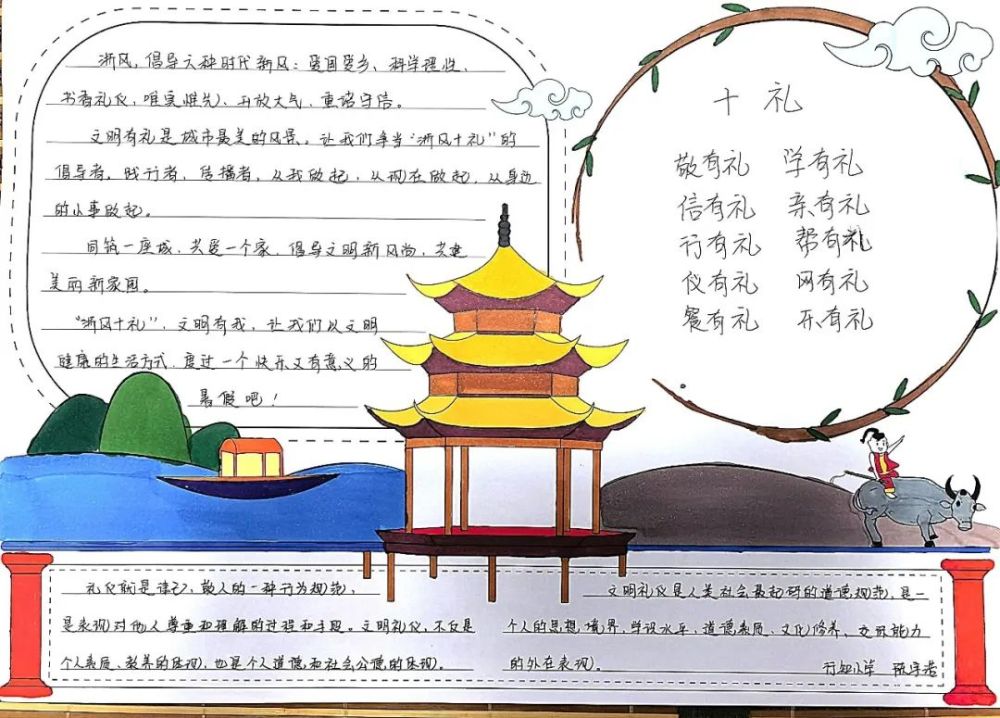 浙风,倡导六种时代新风:爱国爱乡、科学理性、
书香礼仪、唯实惟先、开放大气、重诺守信。
文明有礼是城市最美的风景。让我们争当“浙风十礼”的
倡导者,践行者,传播者,从我做起,从现在做起,从身边
的小事做起。
同筑一座城,共爱一个家,倡导文明新风尚,共建
美丽新家园。
“浙风十礼”,文明有我,让我们以文明
健康的生活方式,度过一个快乐又有意义的
暑假吧!
十礼
敬有礼 学有礼
信有礼 亲有礼
行有礼 帮有礼
仪有礼 网有礼
餐有礼 乐有礼
礼仪就是律己,敬人的一种行为规范,
是表现对他人尊重和理解的过程和手段。文明礼仪,不仅是
个人素质、教养的体现,也是个人道德和社会公德的体现。
文明礼仪是人类社会最起码的道德规范,是一
个人的思想境界,学设水平、道德素质、文化修养、交际能力
的外在表现。
行知小学